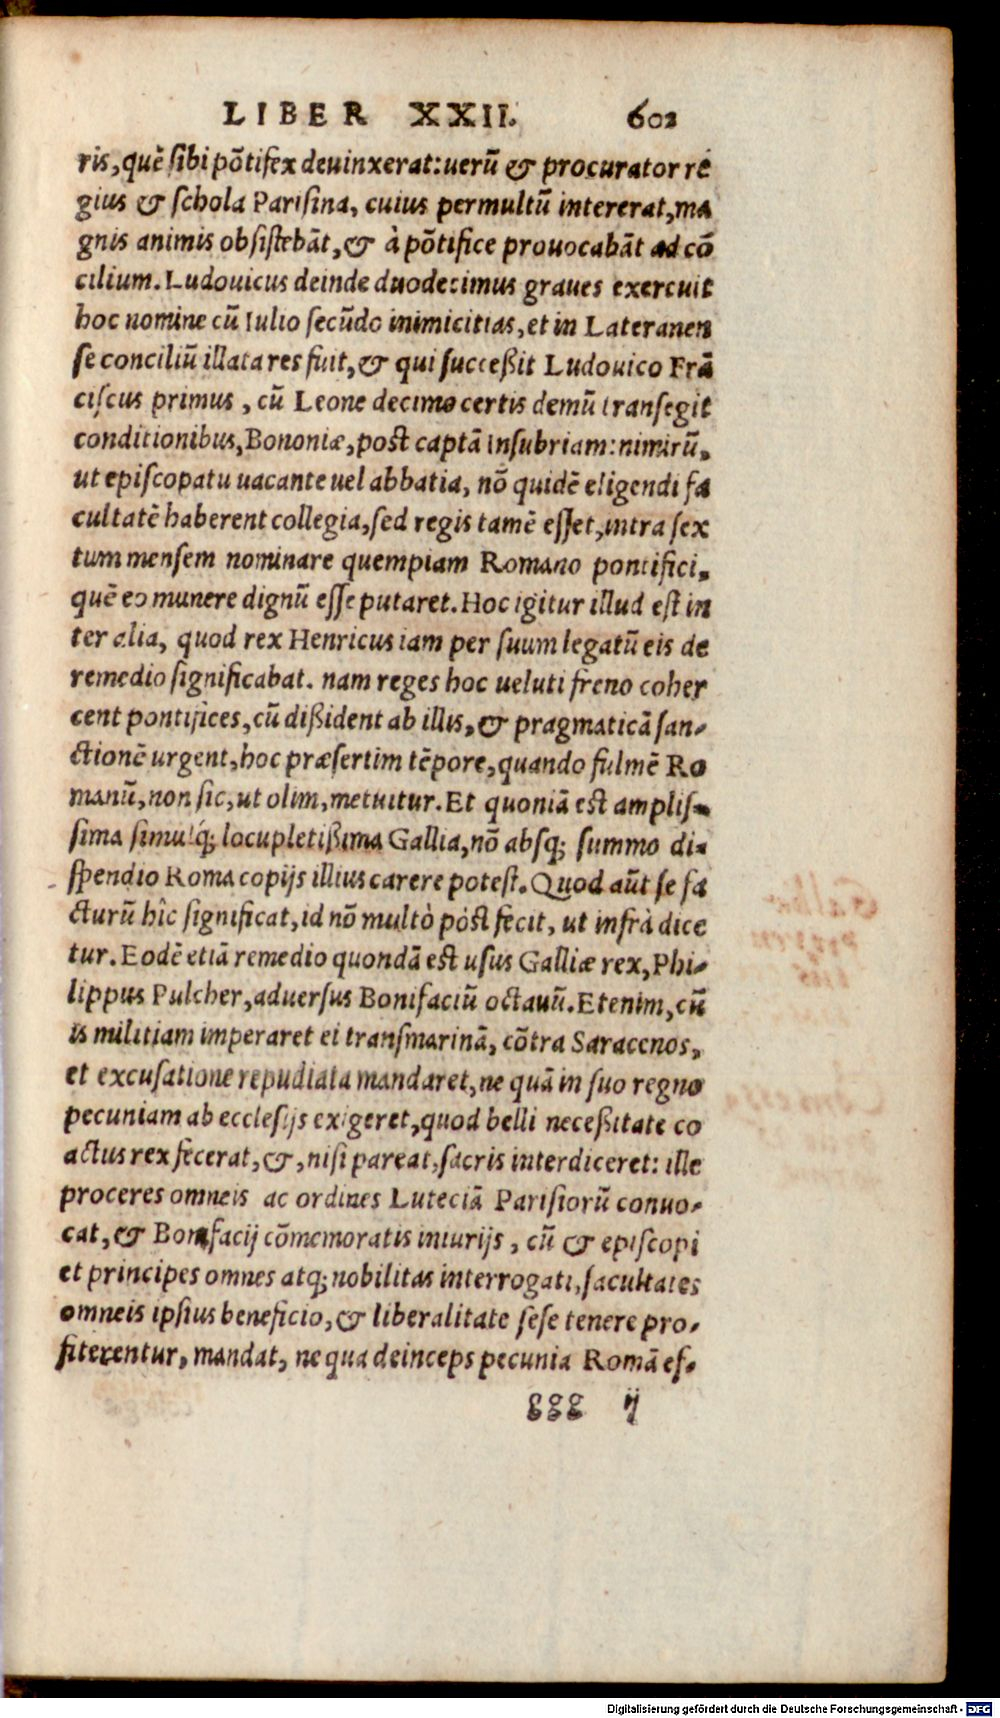 LIBER XXII. 602
ris, quē sibi põtifex deuinxerat: uerũ & procurator re
gius & schola Parisina, cuius permultũ intererat, ma
gnis animis obsistebãt, & à põtifice prouocabãt ad cõ
cilium. Ludouicus deinde duodecimus graues exercuit
hoc nomine cũ Iulio secũdo inimicitias, et in Lateranen
se conciliũ illata res fuit, & qui succeßit Ludouico Frã
ciscus primus, cũ Leone decimo certis demũ transegit
conditionibus, Bononiæ, post captã Insubriam: nimirũ,
ut episcopatu uacante uel abbatia, nõ quidē eligendi fa
cultatē haberent collegia, sed regis tamē esset, intra sex
tum mensem nominare quempiam Romano pontifici,
quē eo munere dignũ esse putaret. Hoc igitur illud est in
ter alia, quod rex Henricus iam per suum legatũ eis de
remedio significabat. nam reges hoc ueluti freno coher
cent pontifices, cũ dißident ab illis, & pragmaticã san-
ctionē urgent, hoc præsertim tēpore, quando fulmē Ro
manũ, non sic, ut olim, metuitur. Et quoniã est amplis-
sima simulq́; locupletißima Gallia, nõ absq; summo di-
spendio Roma copijs illius carere potest. Quod aũt se fa
cturũ hîc significat, id nõ multò pòst fecit, ut infrà dice
tur. Eodē etiã remedio quondã est usus Galliæ rex, Phi-
lippus Pulcher, aduersus Bonifaciũ octauũ. Etenim, cũ
is militiam imperaret ei transmarinã, cõtra Saracenos,
et excusatione repudiata mandaret, ne quã in suo regno
pecuniam ab ecclesijs exigeret, quod belli neceßitate co
actus rex fecerat, &, nisi pareat, sacris interdiceret: ille
proceres omneis ac ordines Luteciã Parisiorũ conuo-
cat, & Bonifacij cõmemoratis iniurijs, cũ & episcopi
et principes omnes atq; nobilitas interrogati, facultates
omneis ipsius beneficio, & liberalitate sese tenere pro-
fiterentur, mandat, ne qua deinceps pecunia Romã ef-
ggg ij
Digitalisierung gefördert durch die Deutsche Forschungsgemeinschaft - DFG